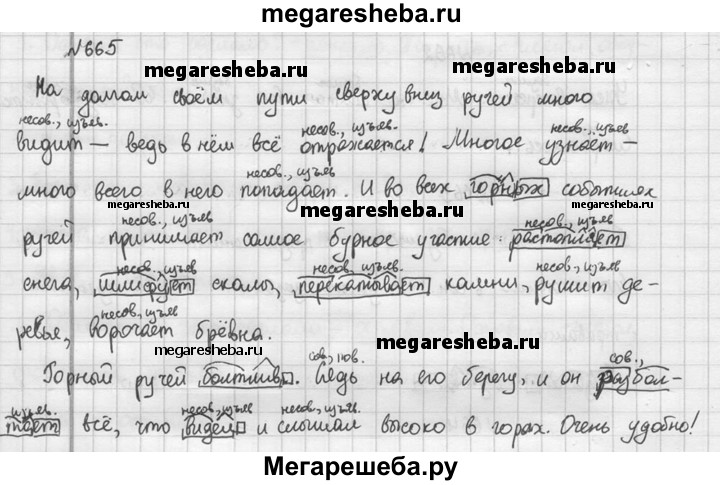 megaresheba.ru
№665
На долгом своём пути сверху вниз ручей много
megaresheba.ru megaresheba.ru
несов., изъяв. несов., изъяв. несов., изъяв.
видит — ведь в нём всё отражается! Многое узнаёт —
несов., изъяв.
много всего в него попадает. И во всех горных событиях
megaresheba.ru megaresheba.ru megaresheba.ru
несов., изъяв несов., изъяв
ручей принимает самое бурное участие: растопляет
несов., изъяв несов., изъяв. несов., изъяв
снега, шлифует скалы, перекатывает камни, рушит де-
несов., изъяв
ревья, ворочает брёвна.
megaresheba.ru megaresheba.ru
сов., пов. сов.,
Горный ручей болтлив. Сядь на его берегу, и он разбол-
изъяв. несов., изъяв несов., изъяв.
тает всё, что видел и слышал высоко в горах. Очень удобно!
Мегарешеба.ру